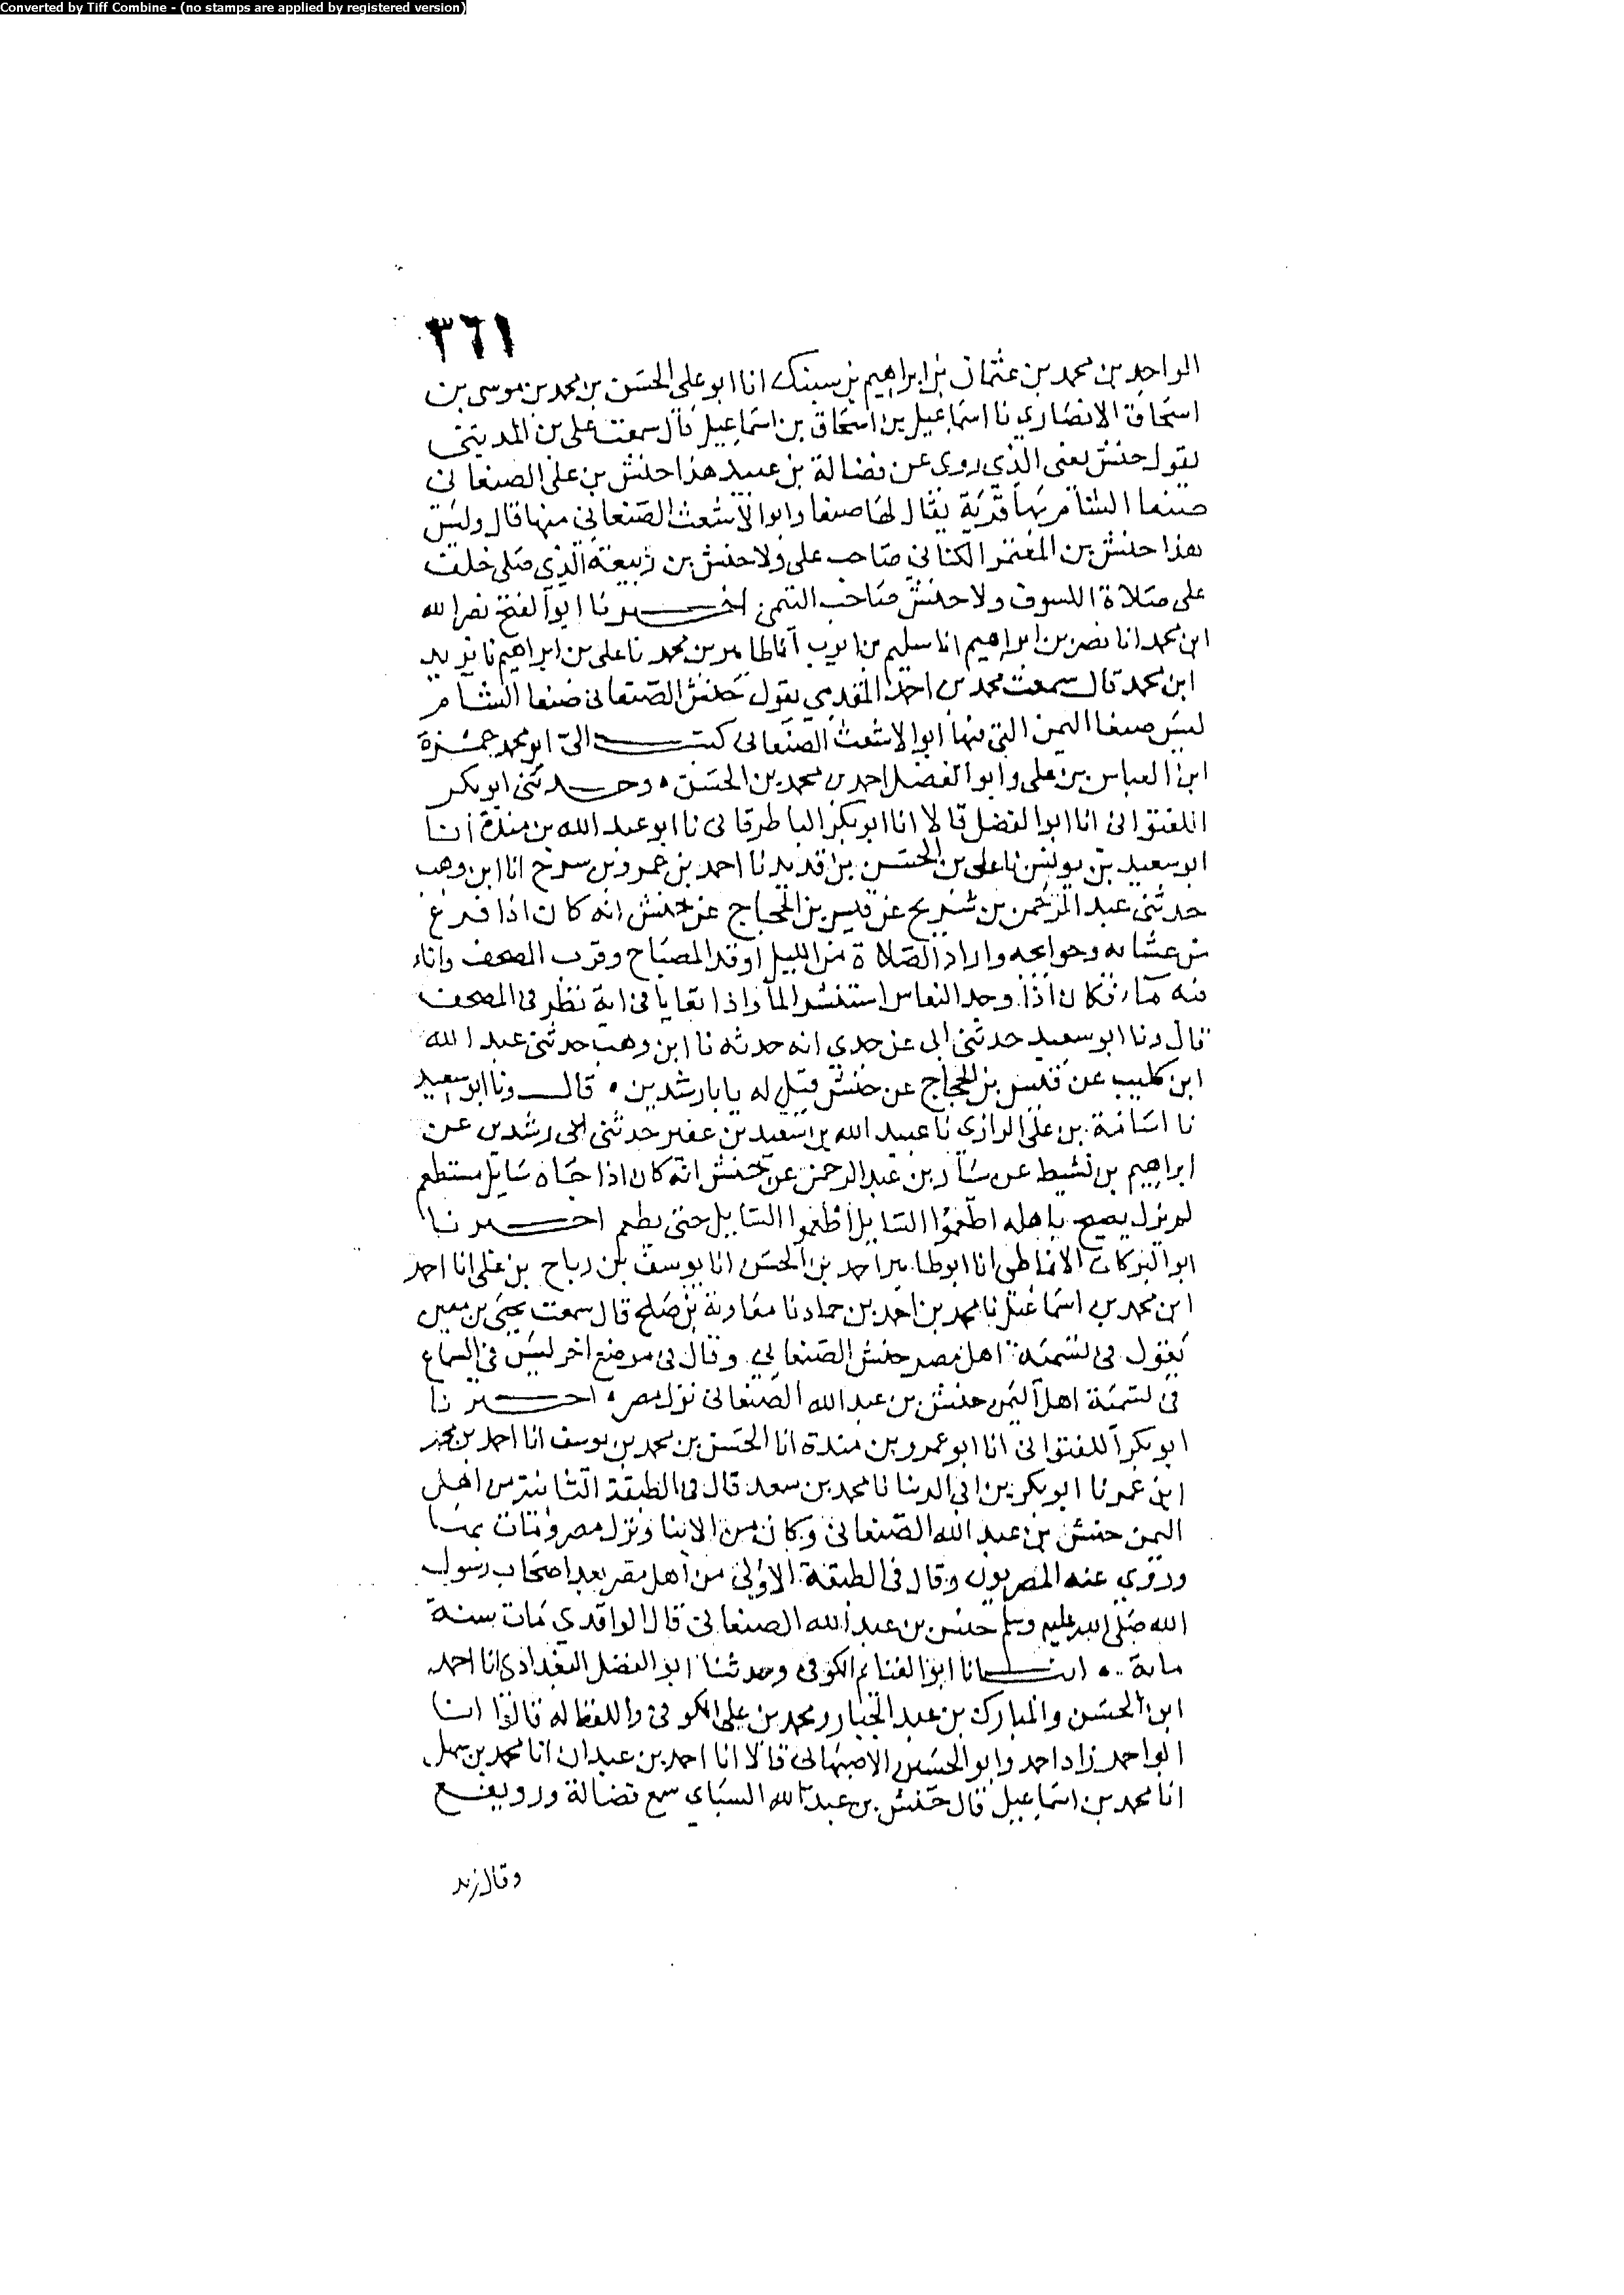 Converted by Tiff Combine - (no stamps are applied by registered version)
٣٦١
الواحد بن محمد بن عثمان بن ابراهيم بن سبنك انا ابو علي الحسن بن محمد بن موسى بن
اسحاق الانصاري نا اسماعيل بن اسحاق بن اسماعيل قال سمعت علي بن المديني
يقول حنش يعني الذي روى عن فضالة بن عبيد هذا حنش بن علي الصنعاني
صنعا الشام بها قرية يقال لها صنعا وابو الاشعث الصنعاني منها قال وليس
هذا حنش بن المعتمر الكناني صاحب علي ولا حنش بن ربيعة الذي صلى خلف
علي صلاة الكسوف ولا حنش صاحب التيمي اخبرنا ابو الفتح نصر الله
ابن محمد انا نصر بن ابراهيم انا سليم بن ايوب انا طاهر بن محمد نا علي بن ابراهيم نا يزيد
ابن محمد قال سمعت محمد بن احمد المقدمي يقول حنش الصنعاني صنعا الشام
ليس صنعا اليمن التي منها ابو الاشعث الصنعاني كتب الي ابو محمد حمزة
ابن العباس بن علي وابو الفضل احمد بن محمد بن الحسن ٥ وحدثني ابو بكر
اللفتواني انا ابو الفضل قالا انا ابو بكر الباطرقاني نا ابو عبد الله بن مندة انا
ابو سعيد بن يونس نا علي بن الحسن بن قديد نا احمد بن عمرو بن سرح انا ابن وهب
حدثني عبد الرحمن بن شريح عن قيس بن الحجاج عن حنش انه كان اذا فرغ
من عشايه وحوايجه واراد الصلاة من الليل اوقد المصباح وقرب المصحف واناء
فيه ماء فكان اذا وجد النعاس استنشق الما واذا تعايا في اية نظر في المصحف
قال ونا ابو سعيد حدثني ابي عن جدي انه حدثه نا ابن وهب حدثني عبد الله
ابن كليب عن قيس بن الحجاج عن حنش قيل له يا با رشدين ٥ قال ونا ابو سعيد
نا اسامة بن علي الرازي نا عبيد الله بن سعيد بن عفير حدثني ابي رشدين عن
ابراهيم بن نشيط عن سار بن عبد الرحمن عن حنش انه كان اذا جاه سايل مستطعم
لم يزل يصيح باهله اطعموا السايل اطعموا السايل حتى يطعم اخبرنا
ابو البركات الانماطي انا ابو طاهر احمد بن الحسن انا يوسف بن رباح بن علي انا احمد
ابن محمد بن اسماعيل نا محمد بن احمد بن حماد نا معاوية بن صلح قال سمعت يحيى بن معين
يقول في تسمية اهل مصر حنش الصنعاني وقال في موضع اخر ليس في السماع
في تسمية اهل اليمن حنش بن عبد الله الصنعاني نزل مصر ٥ اخبرنا
ابو بكر اللفتواني انا ابو عمرو بن مندة انا الحسن بن محمد بن يوسف انا احمد بن محمد
ابن عمر نا ابو بكر بن ابي الدنيا نا محمد بن سعد قال في الطبقة الثانية من اهل
اليمن حنش بن عبد الله الصنعاني وكان من الابنا ونزل مصر ومات بها
وروى عنه المصريون وقال في الطبقة الاولى من اهل مصر بعد اصحاب رسول
الله صلى الله عليه وسلم حنش بن عبد الله الصنعاني قال الواقدي مات سنة
ماية ٥ انبانا ابو الغنايم الكوفي وحدثنا ابو الفضل البغدادي انا احمد
ابن الحسن والمبارك بن عبد الجبار ومحمد بن علي الكوفي واللفظ له قالوا انا
ابو احمد زاد احمد وابو الحسين الاصبهاني قالا انا احمد بن عبدان انا محمد بن سهل
انا محمد بن اسماعيل قال حنش بن عبد الله السباي سمع فضالة ورويفع
وقال زيد